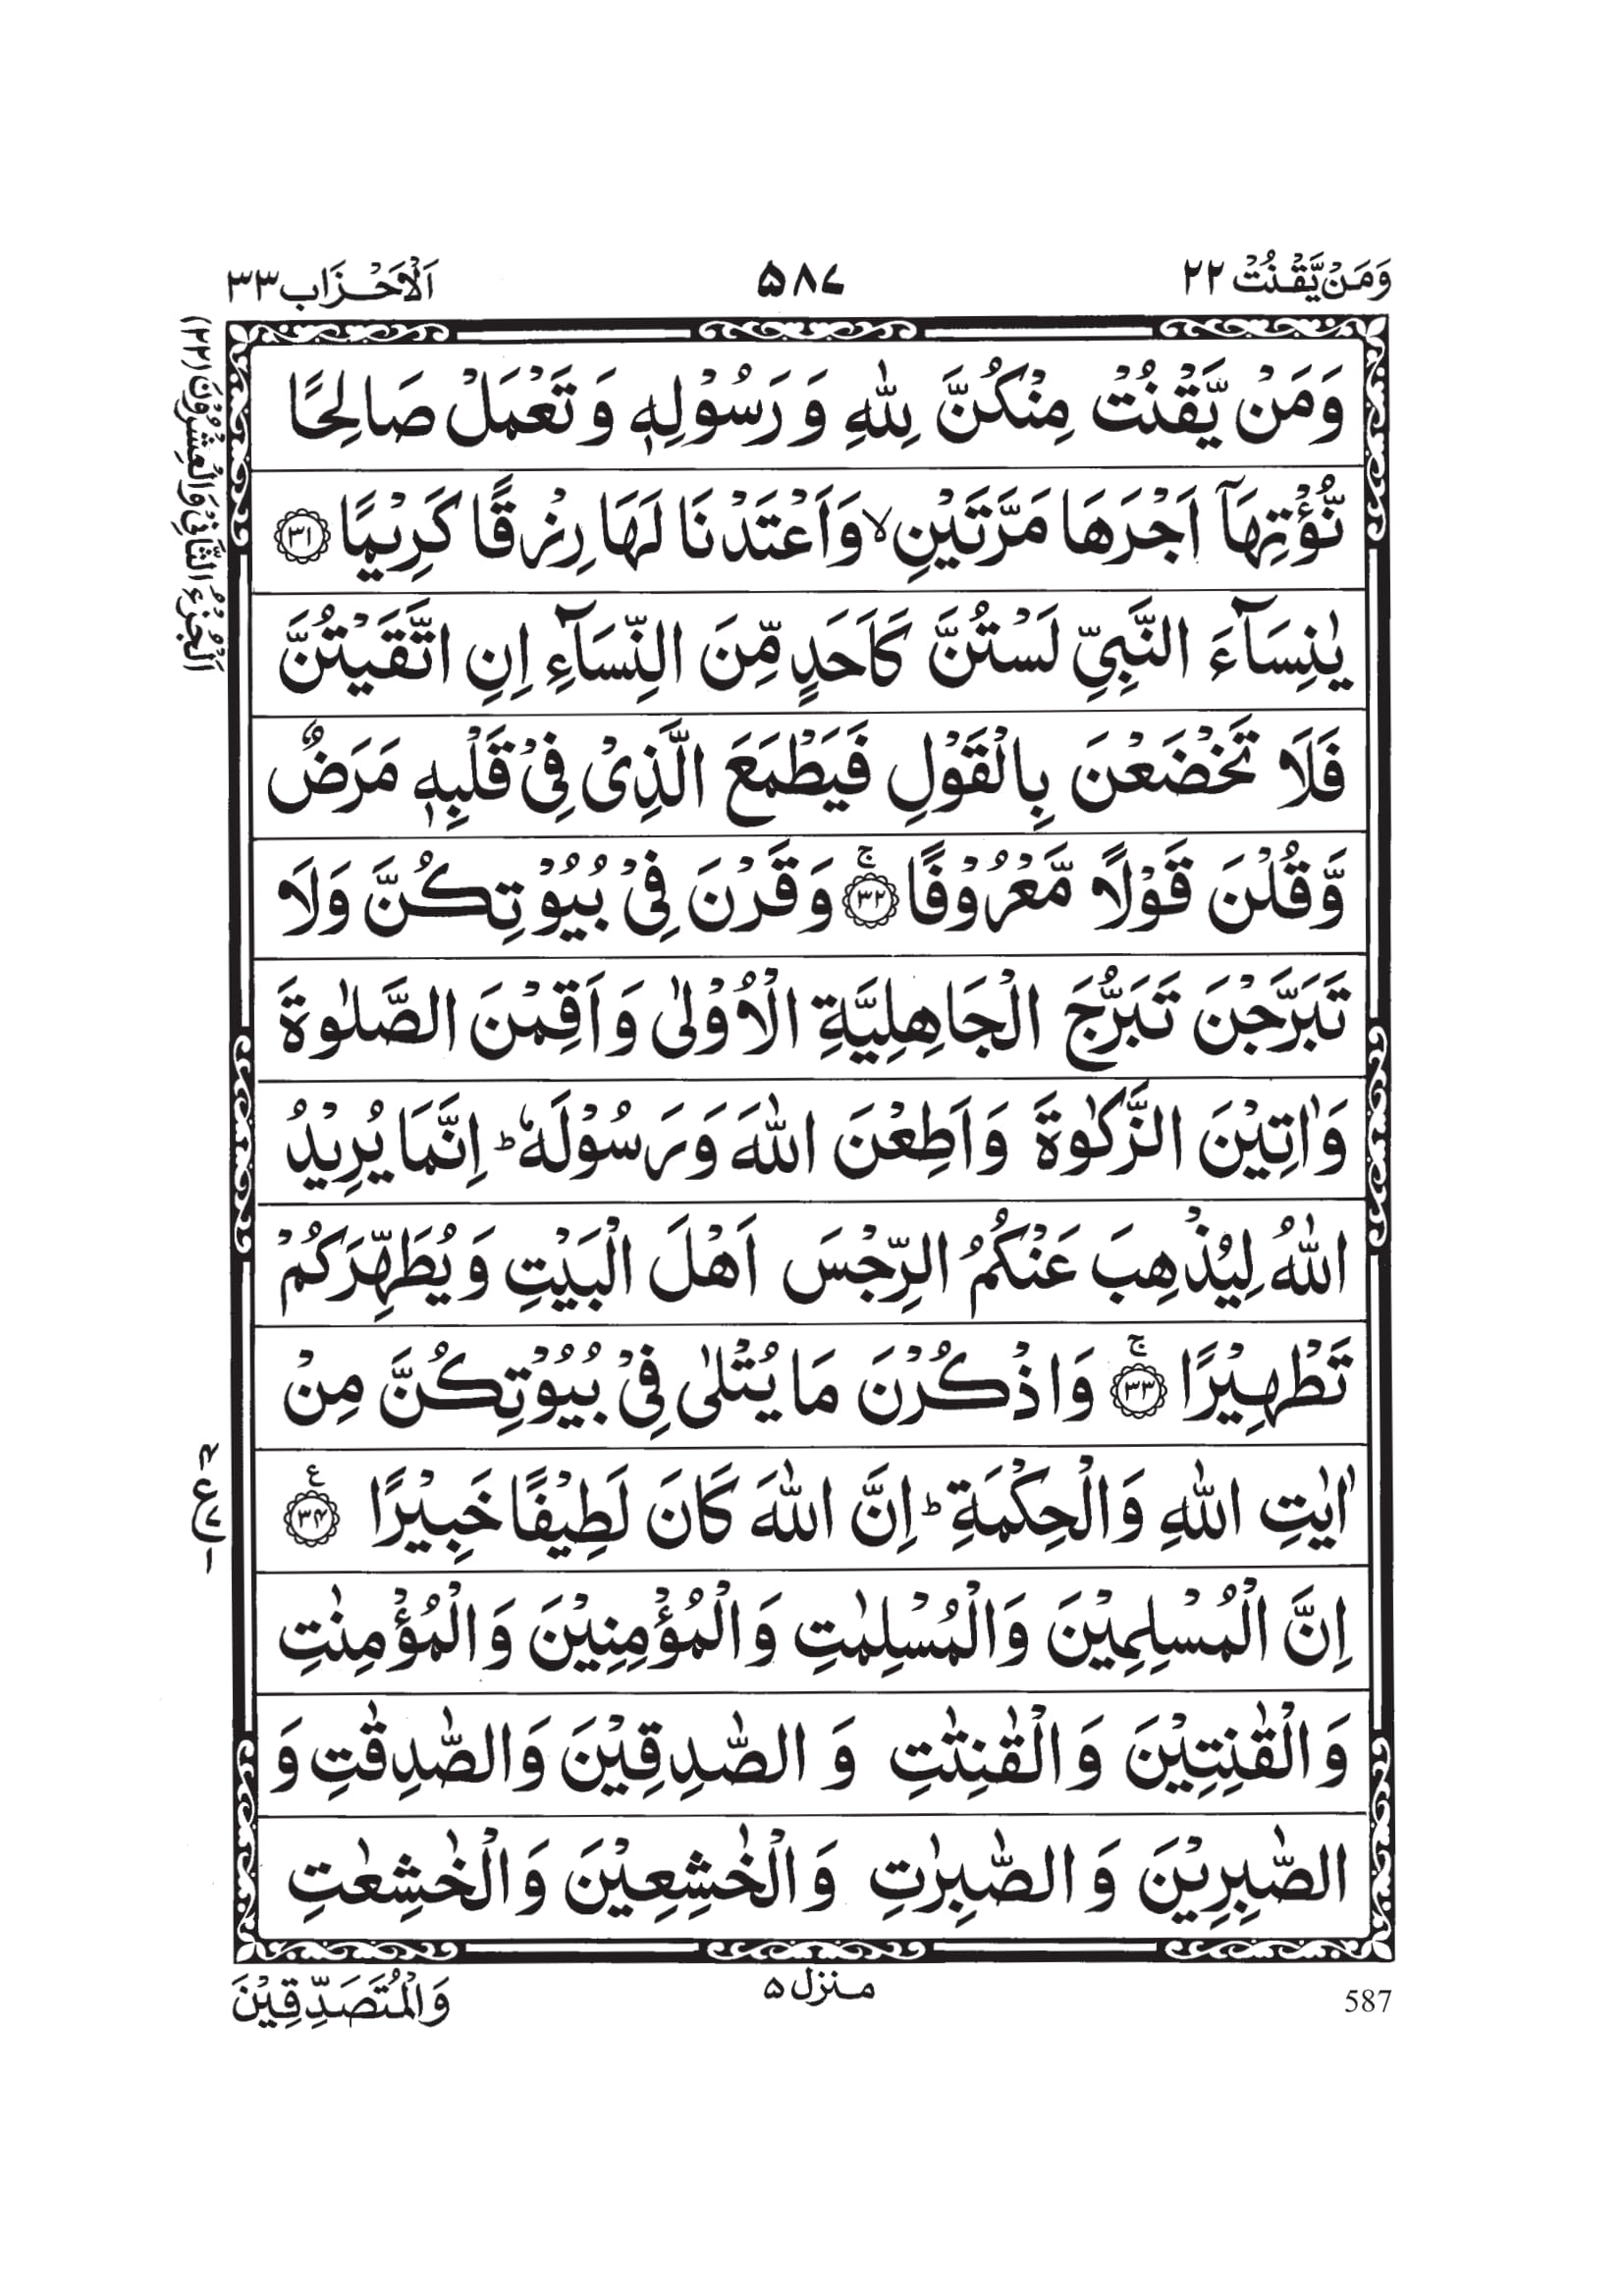 وَمَنْ يَّقْنُتْ ٢٢
۵۸۷
اَلْاَحْزَاب ٣٣
اَلْجُزْءُ الثَّانِیْ وَالْعِشْرُوْنَ (٢٢)
وَمَنْ يَّقْنُتْ مِنْكُنَّ لِلّٰهِ وَ رَسُوْلِهٖ وَ تَعْمَلْ صَالِحًا
نُّؤْتِهَاۤ اَجْرَهَا مَرَّتَيْنِ ۙ وَاَعْتَدْنَا لَهَا رِزْقًا كَرِيْمًا ﴿۳۱﴾
يٰنِسَآءَ النَّبِىِّ لَسْتُنَّ كَاَحَدٍ مِّنَ النِّسَآءِ اِنِ اتَّقَيْتُنَّ
فَلَا تَخْضَعْنَ بِالْقَوْلِ فَيَطْمَعَ الَّذِىْ فِىْ قَلْبِهٖ مَرَضٌ
وَّقُلْنَ قَوْلًا مَّعْرُوْفًا ﴿۳۲﴾ۚ وَقَرْنَ فِىْ بُيُوْتِكُنَّ وَلَا
تَبَرَّجْنَ تَبَرُّجَ الْجَاهِلِيَّةِ الْاُوْلٰى وَاَقِمْنَ الصَّلٰوةَ
وَاٰتِيْنَ الزَّكٰوةَ وَاَطِعْنَ اللّٰهَ وَرَسُوْلَهٗ ؕ اِنَّمَا يُرِيْدُ
اللّٰهُ لِيُذْهِبَ عَنْكُمُ الرِّجْسَ اَهْلَ الْبَيْتِ وَيُطَهِّرَكُمْ
تَطْهِيْرًا ﴿۳۳﴾ۚ وَاذْكُرْنَ مَا يُتْلٰى فِىْ بُيُوْتِكُنَّ مِنْ
اٰيٰتِ اللّٰهِ وَالْحِكْمَةِ ؕ اِنَّ اللّٰهَ كَانَ لَطِيْفًا خَبِيْرًا ﴿۳۴﴾ع
اِنَّ الْمُسْلِمِيْنَ وَالْمُسْلِمٰتِ وَالْمُؤْمِنِيْنَ وَالْمُؤْمِنٰتِ
وَالْقٰنِتِيْنَ وَالْقٰنِتٰتِ وَ الصّٰدِقِيْنَ وَالصّٰدِقٰتِ وَ
الصّٰبِرِيْنَ وَ الصّٰبِرٰتِ وَالْخٰشِعِيْنَ وَالْخٰشِعٰتِ
وَالْمُتَصَدِّقِيْنَ
منزل ۵
587